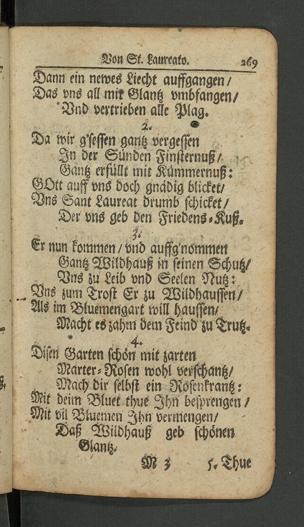 Von St. Laureato. 269
Dann ein newes Liecht auffgangen/
Das vns all mit Glantz vmbfangen/
Vnd vertrieben alle Plag.
2.
Da wir g'sessen gantz vergessen
In der Sünden Finsternuß/
Gantz erfüllt mit Kümmernuß:
GOtt auff vns doch gnädig blicket/
Vns Sant Laureat drumb schicket/
Der vns geb den Friedens-Kuß.
3.
Er nun kommen/ vnd auffg'nommen
Gantz Wildhauß in seinen Schutz/
Vns zu Leib vnd Seelen Nutz:
Vns zum Trost Er zu Wildhaussen/
Als im Bluemengart will haussen/
Macht es zahm dem Feind zu Trutz.
4.
Disen Garten schön mit zarten
Marter-Rosen wohl verschantz/
Mach dir selbst ein Rosenkrantz:
Mit deim Bluet thue Ihn besprengen/
Mit vil Bluemen Ihn vermengen/
Daß Wildhauß geb schönen
Glantz.
M 3 5. Thue